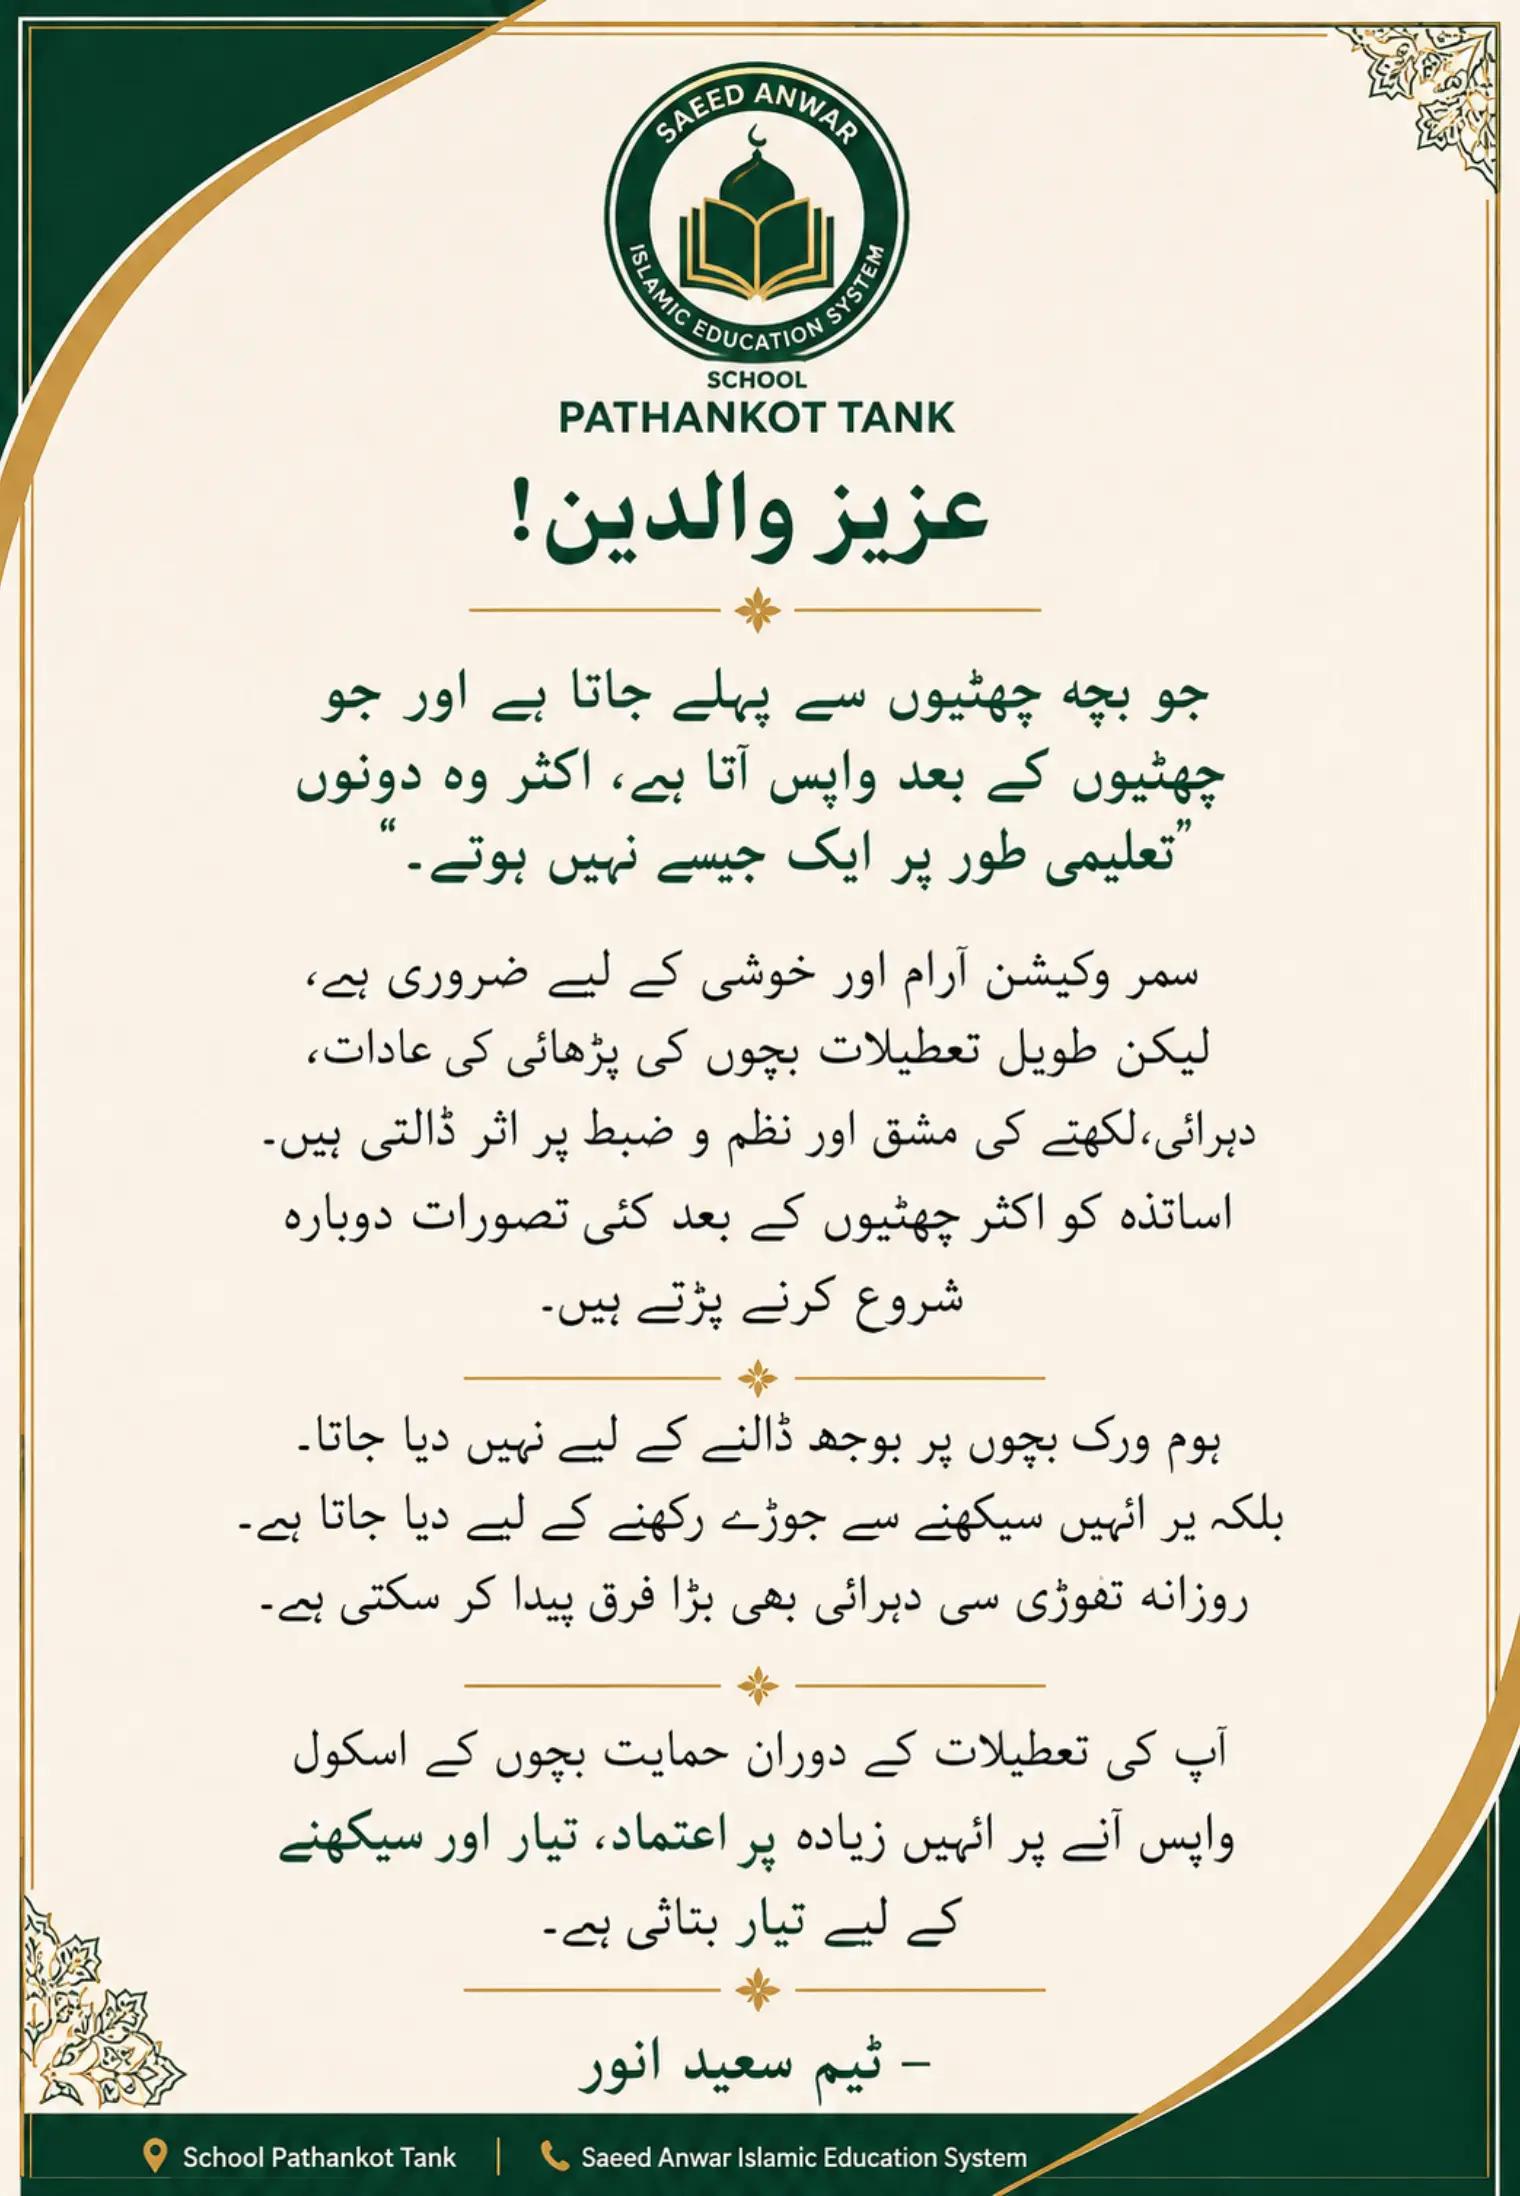 SAEED ANWAR
ISLAMIC EDUCATION SYSTEM
SCHOOL
PATHANKOT TANK
عزیز والدین!
جو بچہ چھٹیوں سے پہلے جاتا ہے اور جو
چھٹیوں کے بعد واپس آتا ہے، اکثر وہ دونوں
”تعلیمی طور پر ایک جیسے نہیں ہوتے۔“
سمر وکیشن آرام اور خوشی کے لیے ضروری ہے،
لیکن طویل تعطیلات بچوں کی پڑھائی کی عادات،
دہرائی،لکھتے کی مشق اور نظم و ضبط پر اثر ڈالتی ہیں۔
اساتذہ کو اکثر چھٹیوں کے بعد کئی تصورات دوبارہ
شروع کرنے پڑتے ہیں۔
ہوم ورک بچوں پر بوجھ ڈالنے کے لیے نہیں دیا جاتا۔
بلکہ یر انہیں سیکھنے سے جوڑے رکھنے کے لیے دیا جاتا ہے۔
روزانہ تفوڑی سی دہرائی بھی بڑا فرق پیدا کر سکتی ہے۔
آپ کی تعطیلات کے دوران حمایت بچوں کے اسکول
واپس آنے پر انہیں زیادہ پر اعتماد، تیار اور سیکھنے
کے لیے تیار بتاثی ہے۔
– ٹیم سعید انور
School Pathankot Tank | Saeed Anwar Islamic Education System